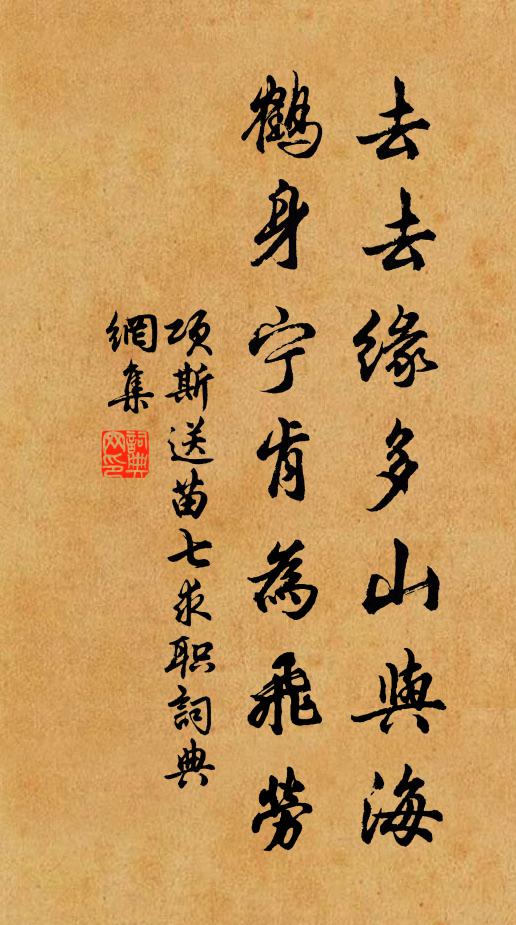 去去緣多山與海
鶴身宁肯為飛勞
项斯送苗七求职詞典
網集
詞典
网印